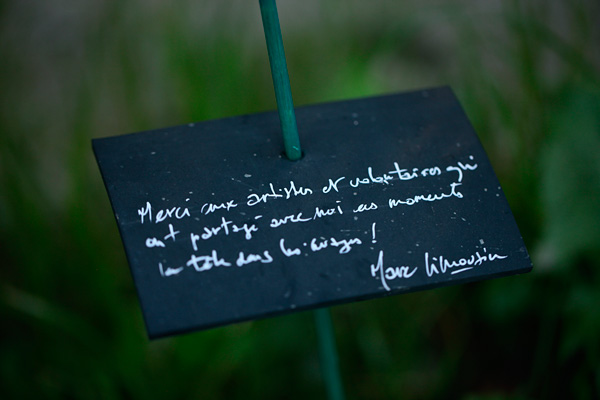 Merci aux artistes et volontaires qui
ont partagé avec moi ces moments
la tête dans les nuages !
Marc Limousin